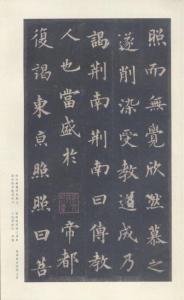 照而無覺欣然慕之
遂削染受教道成乃
謁荊南荊南曰傳教
人也當盛於帝都
復謁東京照照曰菩